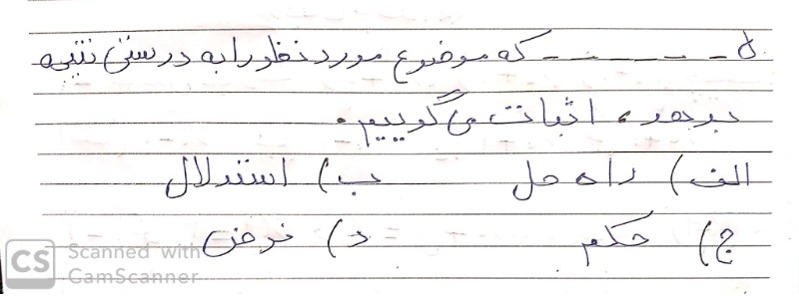 ه ـ ـ ـ ـ ـ ـ ـ که موضوع مورد نظور را به درستی نتیجه
بدهد، اثبات می گوییم.
الف) راه حل ب) استدلال
ج) حکم د) فرض
CS Scanned with
CamScanner